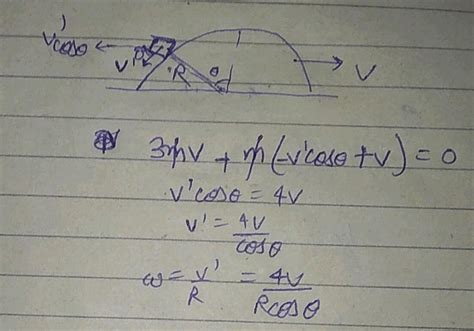 v'cosθ
v
R
θ
V
3mv + m(-v'cosθ + v) = 0
v'cosθ = 4v
v' = 4v/cosθ
ω = v'/R = 4v/Rcosθ